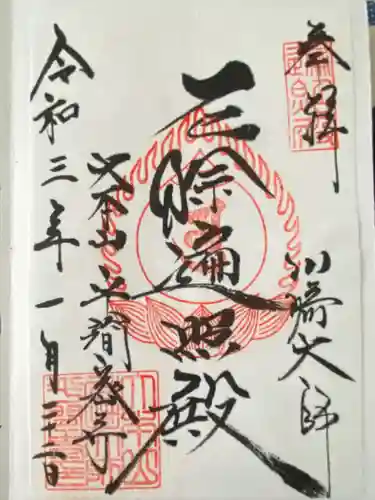 奉拝
川崎大師
三除遍照殿
大本山平間義寺
令和三年一月二十二日